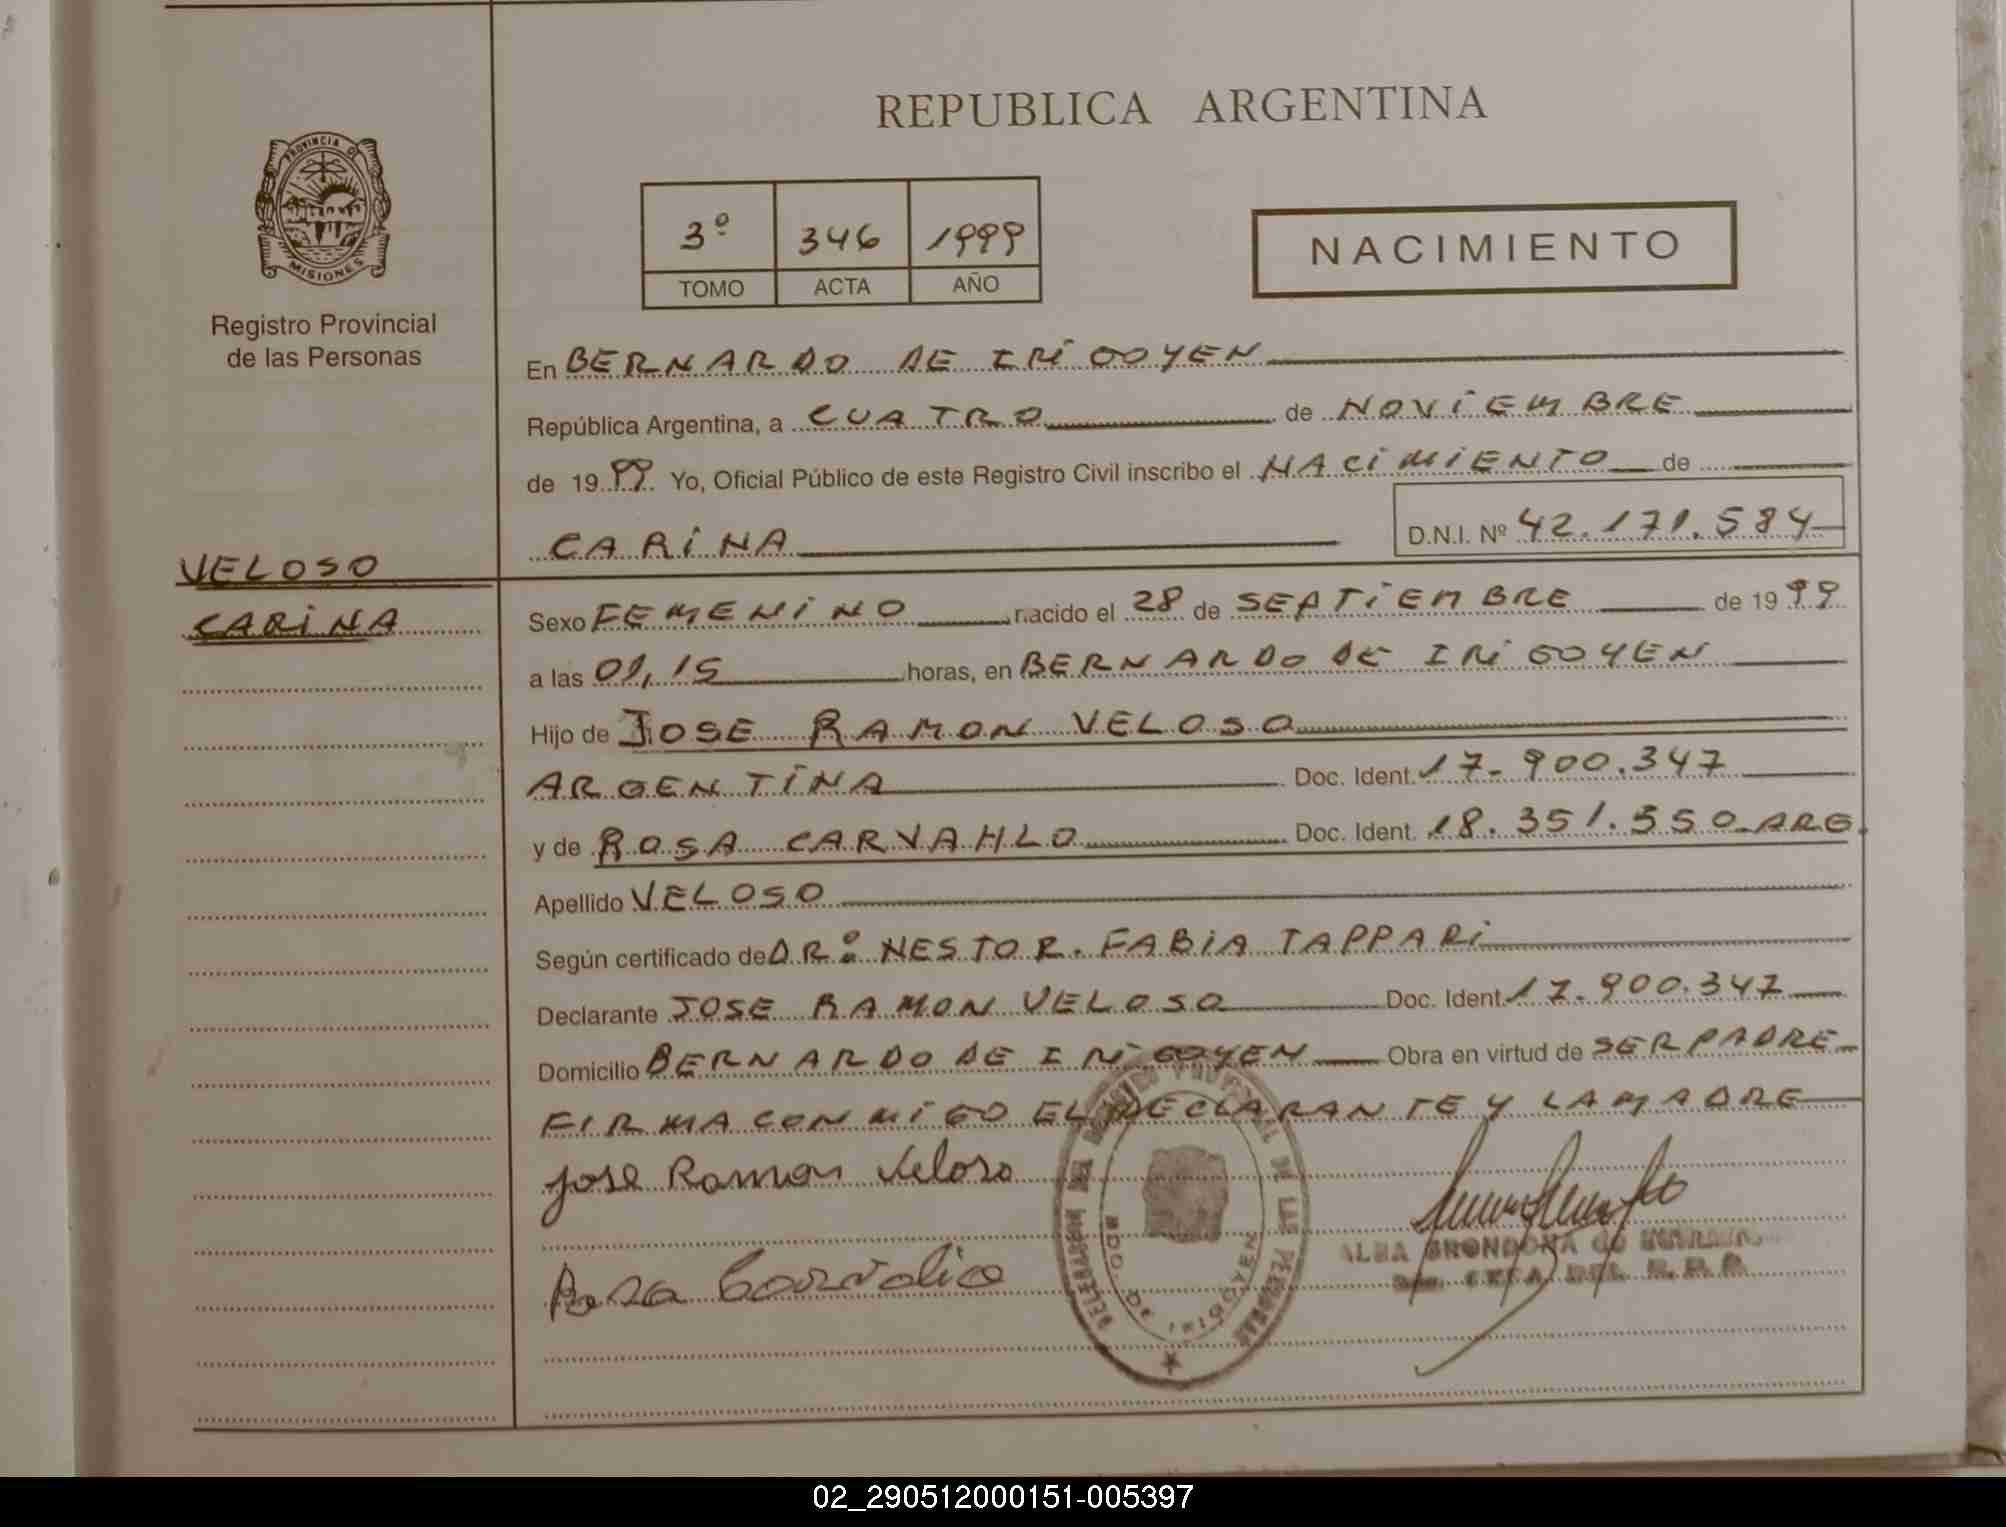 REPUBLICA ARGENTINA
PROVINCIA DE
MISIONES
Registro Provincial
de las Personas
3º 346 1999
TOMO ACTA AÑO
NACIMIENTO
En BERNARDO DE IRIGOYEN
República Argentina, a CUATRO de NOVIEMBRE
de 1999 Yo, Oficial Público de este Registro Civil inscribo el NACIMIENTO de
CARINA D.N.I. Nº 42.171.584
VELOSO
CARINA
Sexo FEMENINO nacido el 28 de SEPTIEMBRE de 1999
a las 01,15 horas, en BERNARDO DE IRIGOYEN
Hijo de JOSE RAMON VELOSO
ARGENTINA Doc. Ident. 17-900.347
y de ROSA CARVAHLO Doc. Ident. 18.351.550-ARG.
Apellido VELOSO
Según certificado de DRº NESTOR. FABIA TAPPARI
Declarante JOSE RAMON VELOSO Doc. Ident. 17.900.347
Domicilio BERNARDO DE IRIGOYEN Obra en virtud de SER PADRE
FIRMA CONMIGO EL DECLARANTE Y LA MADRE
Jose Ramon Veloso
Rosa
PROVINCIAL DE LAS PERSONAS
BDO. DE IRIGOYEN
ALBA GRONDONA
DEL R.P.P.
02_290512000151-005397